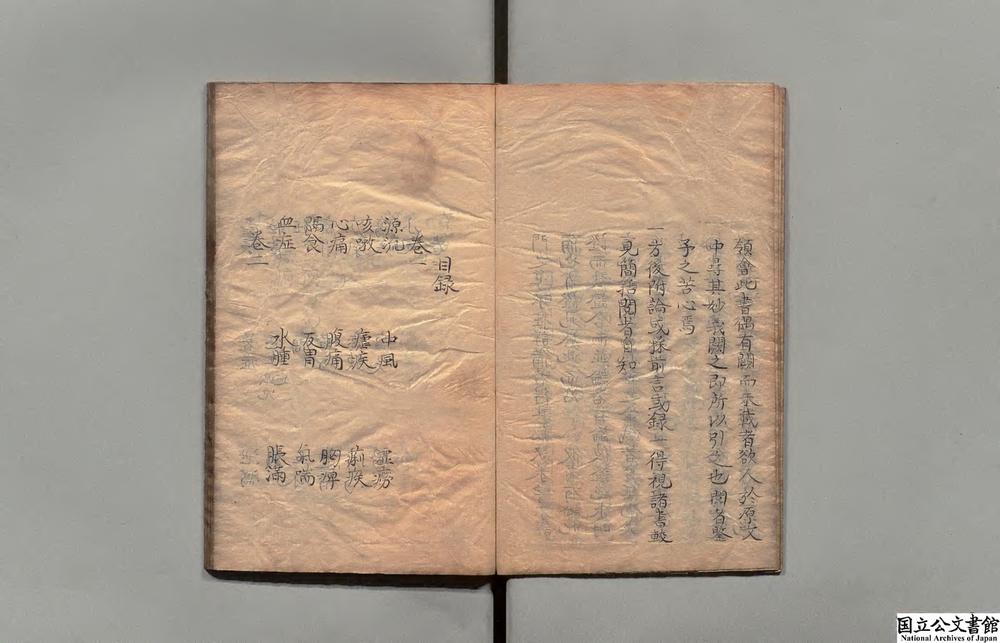 領會此書偶有闕而未載者欲人於原文
中尋其妙義闕之即所以引之也閱者鑒
予之苦心焉
一方後附論或採前言或錄一得視諸書較
見簡括閱者自知
目錄
卷一
源流 中風 虛癆
咳嗽 瘧疾 痢疾
心痛 腹痛 胸痺
隔食 反胃 氣喘
血症 水腫 脹滿
卷二
国立公文書館
National Archives of Japan